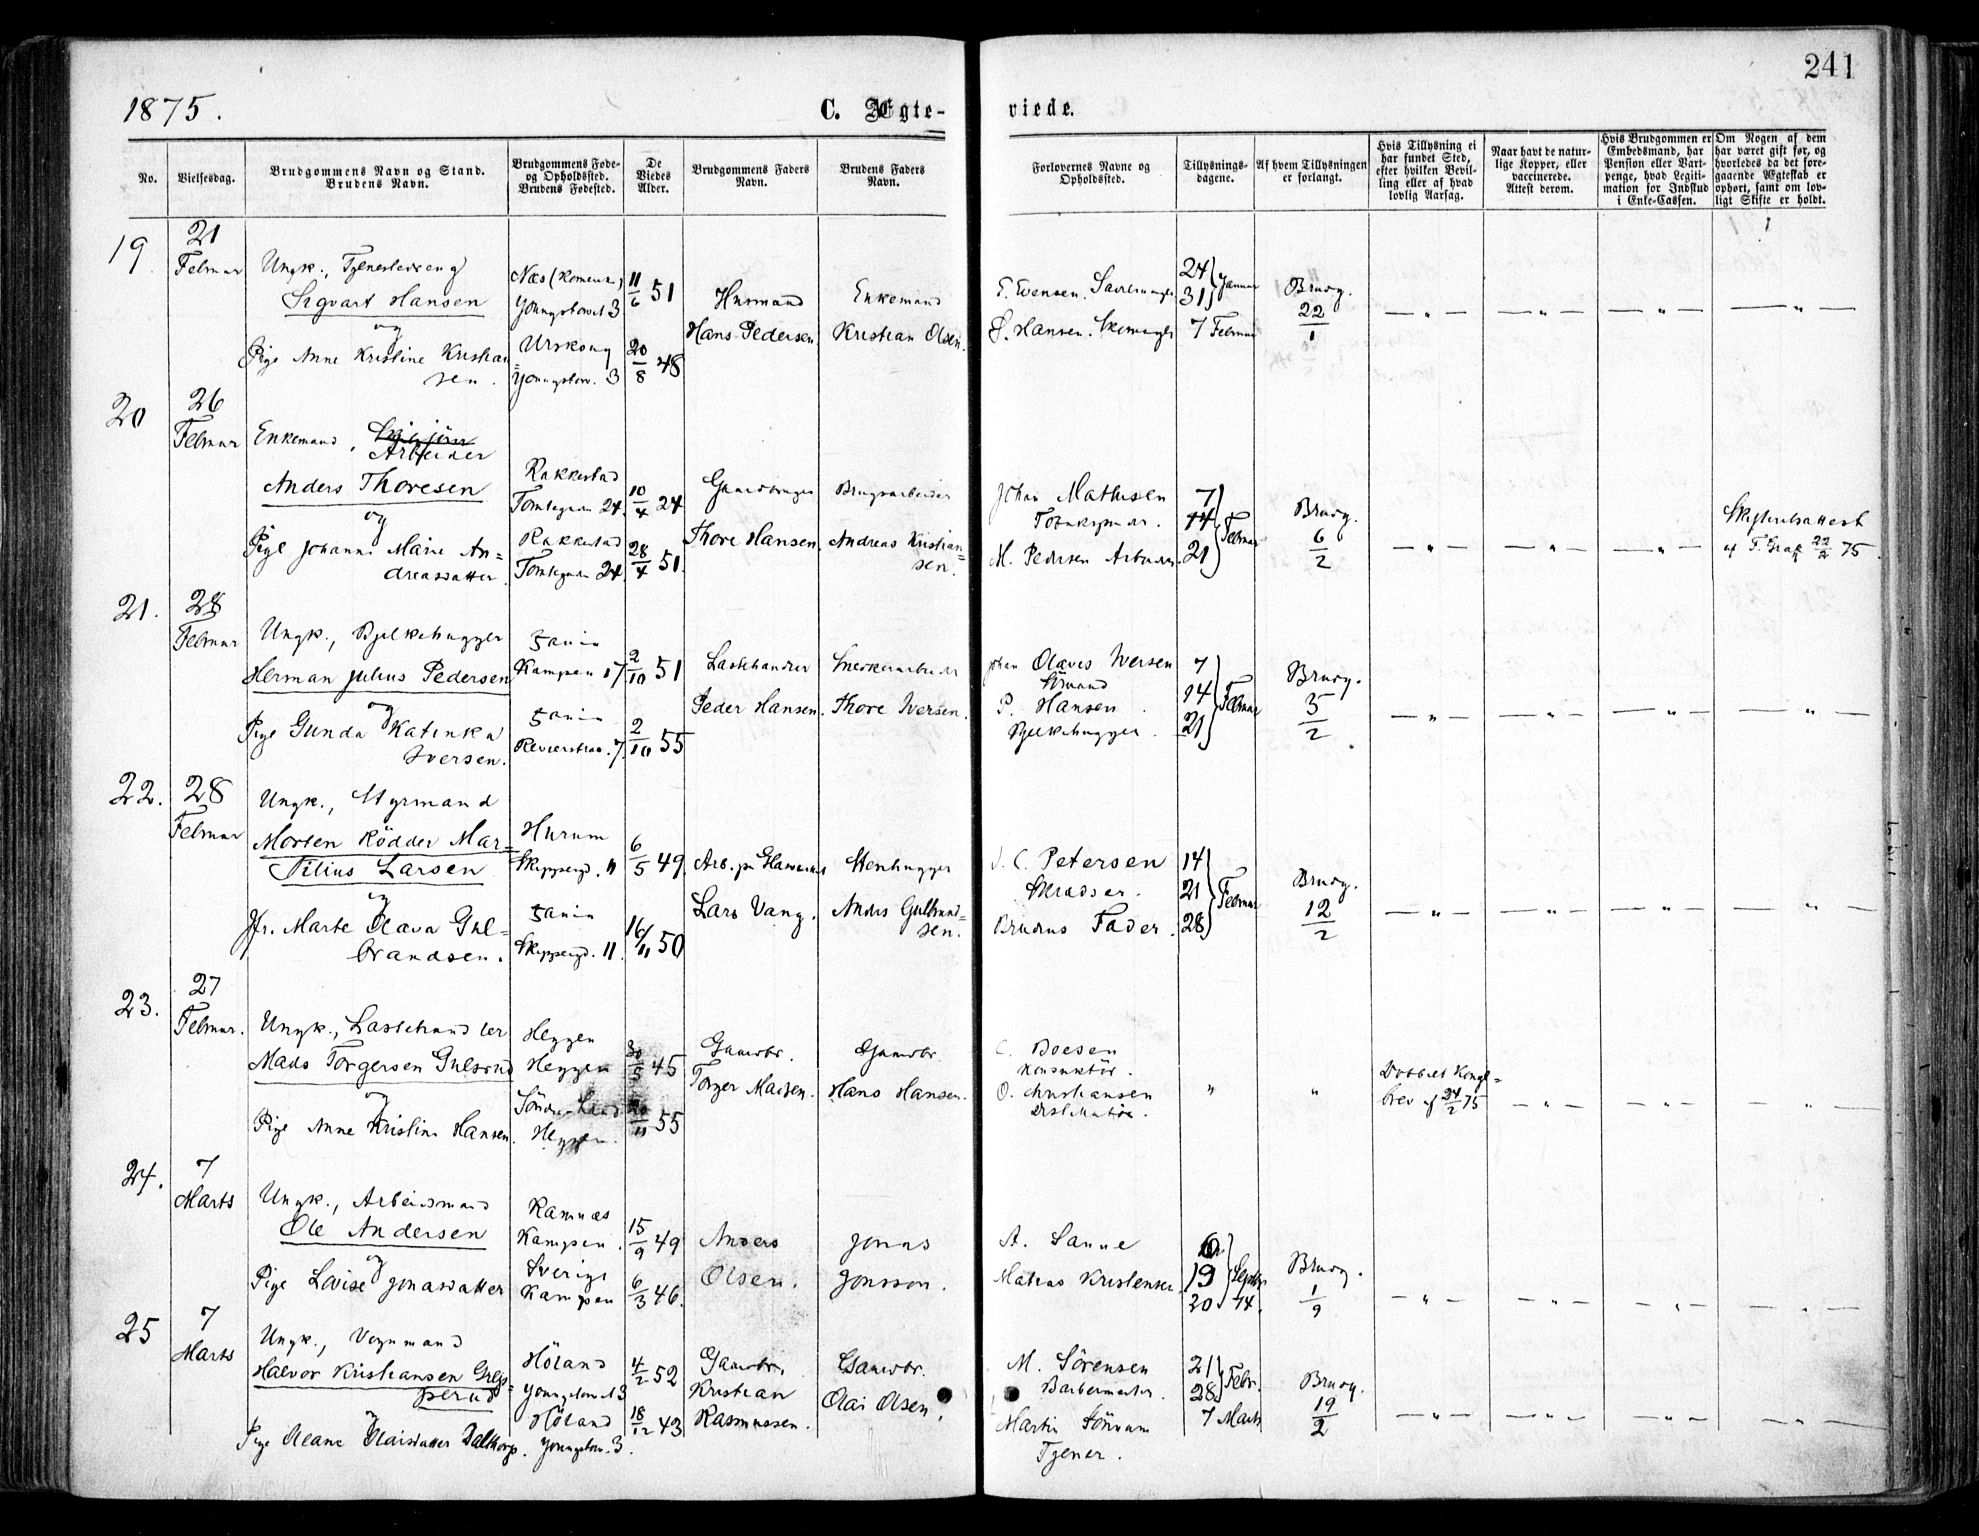 241
1875.
C. Ægte-
viede.
No.
Vielsesdag.
Brudgommens Navn og Stand.
Brudens Navn.
Brudgommens Føde-
og Opholdssted.
Brudens Fødested.
De
Viedes
Alder.
Brudgommens Faders
Navn.
Brudens Faders
Navn.
Forlovernes Navne og
Opholdssted.
Tillysnings-
dagene.
Af hvem Tillysningen
er forlangt.
Hvis Tillysning ei
har fundet Sted,
efter hvilken Bevil-
ling eller af hvad
lovlig Aarsag.
Naar havt de natur-
lige Kopper, eller
vaccinerede.
Attest derom.
Hvis Brudgommen er
Embedsmand, har
Pension eller Vart-
penge, hvad Legiti-
mation for Indskud
i Enke-Cassen.
Om Nogen af dem
har været gift før, og
hvorledes da det fore-
gaaende Ægteskab er
ophørt, samt om lov-
ligt Skifte er holdt.
19
21
Februar
Ungk., Tjenestedreng
Sigvart Hansen
og
Pige Anne Kristine Kristian
sen.
Næs
Youngstorvet 3
Urskoug
Youngstorv. 3
11/6 51
20/8 48
Husmand
Hans Pedersen
Enkemand
Kristian Olsen.
E. Evensen.
S. Hansen.
24
31 Januar
7 Februar
Brudg.
22/1
20
26
Februar
Enkemand,
Arbeider
Anders Thoresen
og
Pige Johanne Marie An-
dreasdatter
Rakkestad
Tomtegaden 24.
Rakkestad
Tomtegaden 24
10/4 24
28/4 51.
Gaardbruger
Thore Hansen.
Brugsarbeider
Andreas Kristian-
sen.
Johan Mathisen
M. Pedersen Arbeider.
7
14
21 Februar
Brudg.
6/2
Skifteattest
af 22/2 75
21.
28
Februar
Ungk., Bjelkehugger
Herman Julius Pedersen
og
Pige Gunda Katinka
Iversen.
Xania
Kampen 17
Xania
Revierstræd. 7.
2/10 51
2/10 55
Lastehandler
Peder Hansen.
Snedkerarbeider
Thore Iversen.
Johan Olaves Iversen
Sömand
P. Hansen
Bjelkehugger.
7
14
21 Februar
Brudg.
5/2
22.
28
Februar
Ungk., Styrmand
Morten Rödder Mar-
tilius Larsen
og
Jfr. Marte Olava Gul-
brandsen.
Hurum
Skippergd. 11
Xania
Skippergd. 11.
6/5 49.
16/11 50
Lars Vang.
Stenhugger
Anders Gulbrand-
sen.
J. C. Petersen
Skrædder.
Brudens Fader.
14
21
28 Februar
Brudg.
12/2
23.
27
Februar.
Ungk., Lastehandler
Mads Torgersen Gulsrud
og
Pige Anne Kristine Hansen.
Heggen
Heggen
Söndre-Land
Heggen.
30/5 45
55
Gaardbr.
Torger Madsen.
Gaardbr.
Hans Hansen.
C. Boesen
Konduktör.
O. Christiansen
Destillatör.
Dobbelt Konge-
brev af 24/2 75
24.
7
Marts
Ungk., Arbeidsmand
Ole Andersen
og
Pige Lovise Jonasdatter
Ramnæs
Kampen.
Sverige
Kampen
15/9 49
6/3 46.
Anders
Olsen.
Jonas
Jonsson.
A. Sanne
Matias Kristensen.
6
19
20 Septbr 74.
Brudg.
1/9
25
7
Marts
Ungk., Vognmand
Halvor Kristiansen Guls-
perud
og
Pige Oleane Olaisdatter Dalthorp.
Höland
Youngstorvet 3
Höland
Youngstorv. 3.
4/2 52
18/12 43
Gaardbr.
Kristian
Rasmussen.
Gaardbr.
Olai Olsen.
M. Sörensen
Barbermester.
Martin
Tjener.
21
28 Febr.
7 Marts
Brudg.
19/2